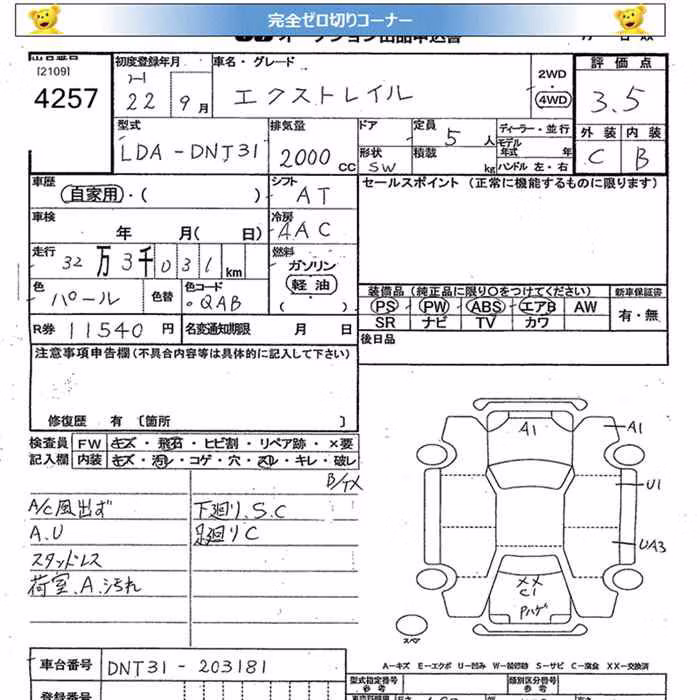 完全ゼロ切りコーナー
[2109]
4257
初度登録年月
H
22 9月
車名・グレード
エクストレイル
2WD
・
4WD
評価点
3.5
外装 内装
C B
型式
LDA-DNT31
排気量
2000 CC
ドア
形状
SW
定員
5人
積載
kg
ディーラー・並行
モデル年式 年
ハンドル 左・右
車歴
自家用・( )
シフト
AT
セールスポイント (正常に機能するものに限ります)
車検
年 月( 日)
冷房
AAC
走行
32万3千031km
燃料
ガソリン
軽油
( )
色
パール
色替
色コード
QAB
装備品 (純正品に限り○をつけてください)
PS PW ABS エアB AW
SR ナビ TV カワ
新車保証書
有・無
R券 11540 円
名変通知期限 月 日
後日品
注意事項申告欄 (不具合内容等は具体的に記入して下さい)
修復歴 有 〔箇所 〕
検査員記入欄
FW キズ・飛石・ヒビ割・リペア跡・×要
内装 キズ・汚レ・コゲ・穴・スレ・キレ・破レ
A/C風出ず
A.U
スタッドレス
荷室.A.汚れ
下廻り.S.C
足廻りC
A1
A1
U1
UA3
XX
C1
Pハゲ
スペア
A-キズ E-エクボ U-凹み W-補修跡 S-サビ C-腐食 XX-交換済
車台番号
DNT31-203181
型式指定番号
参考
類別区分番号
参考
登録番号